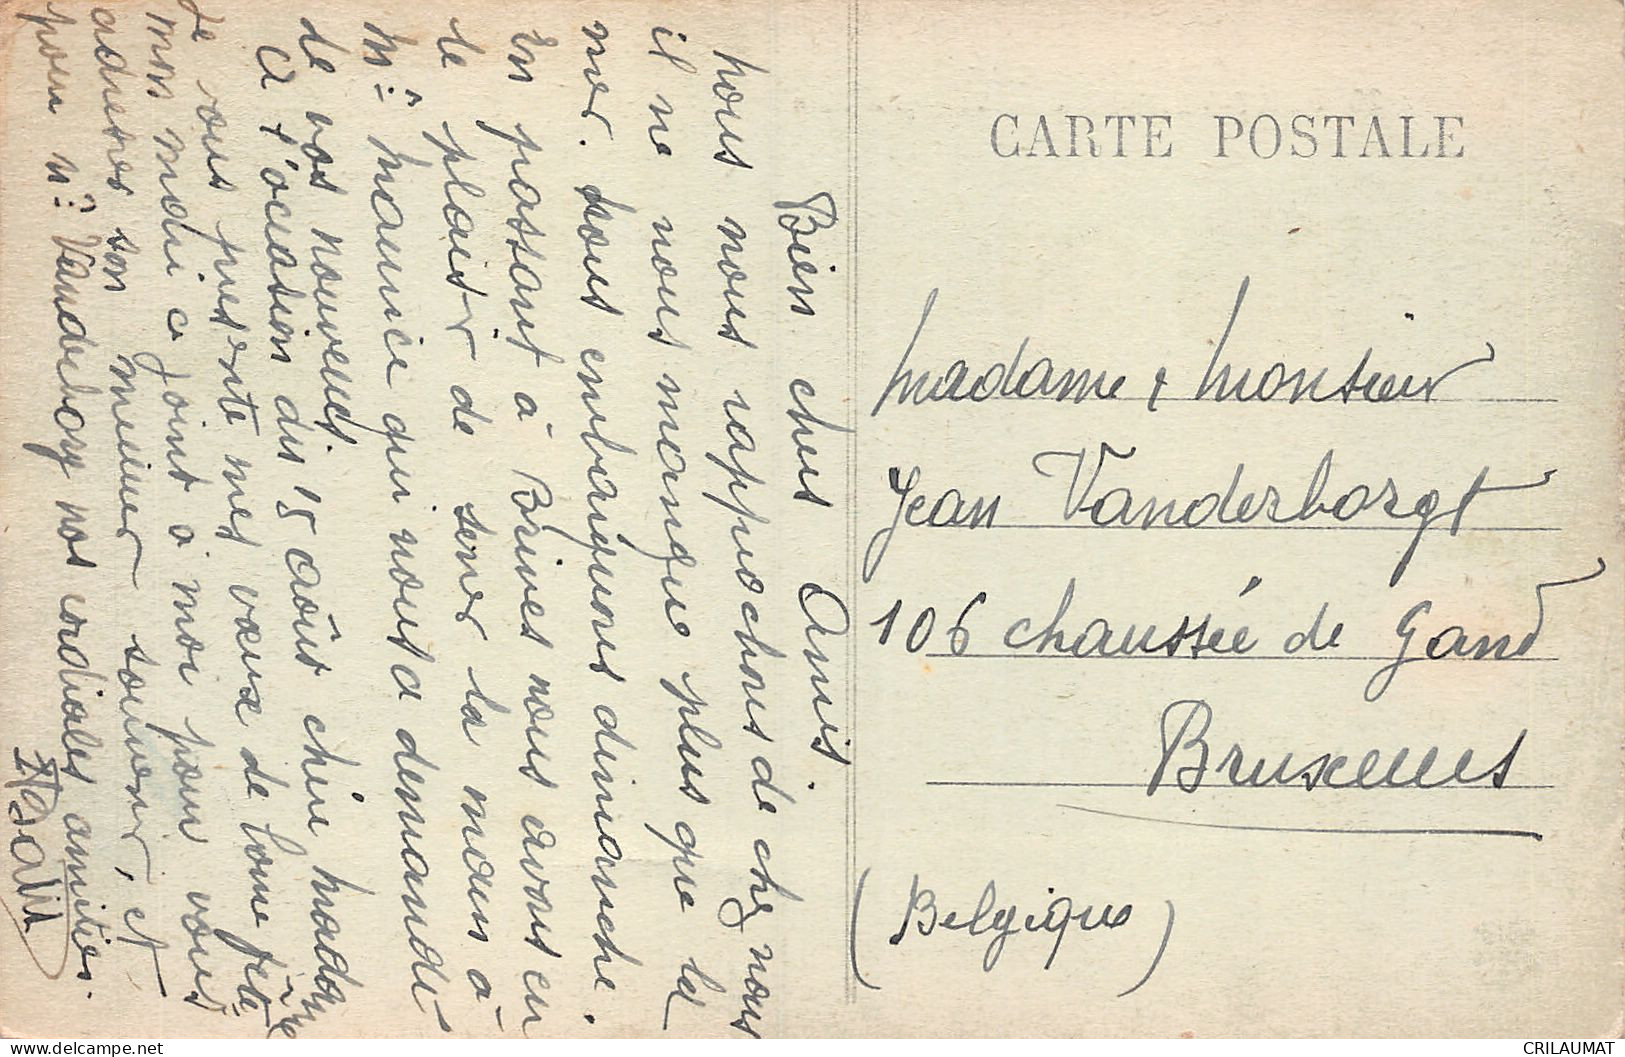 CARTE POSTALE
Bien chers Amis.
Nous nous rapprochons de chez nous
il ne nous manque plus que la
mer. Nous embarquons dimanche.
En passant à Brives nous avons eu
le plaisir de serrer la main à
Mr Maurice qui nous a demandé
de vos nouvelles.
A l'occasion du 15 août chère Madame
je vous présente mes vœux de bonne fête
mon mari ce joint à moi pour vous
adresser son meilleur souvenir, et
pour Mr Vanderborg nos cordiales amitiés.
Madame & Monsieur
Jean Vanderborgt
106 chaussée de Gand
Bruxelles
(Belgique)
CRILAUMAT